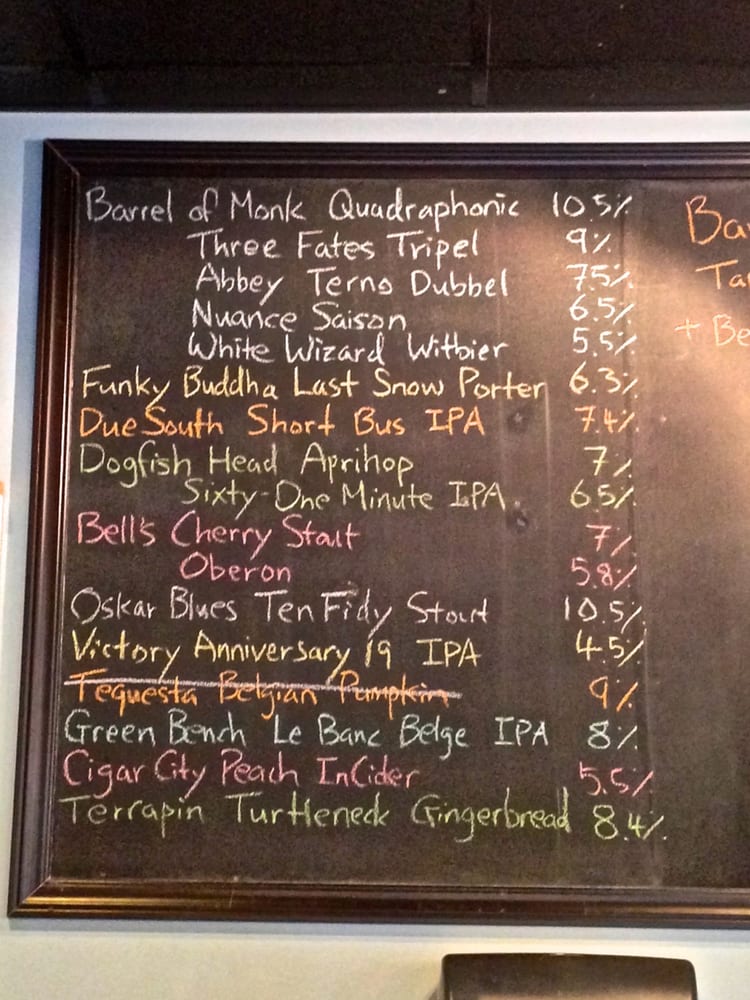 Barrel of Monk Quadraphonic 10.5%
Three Fates Tripel 9%
Abbey Terno Dubbel 7.5%
Nuance Saison 6.5%
White Wizard Witbier 5.5%
Funky Buddha Last Snow Porter 6.3%
Due South Short Bus IPA 7.4%
Dogfish Head Aprihop 7%
Sixty-One Minute IPA. 6.5%
Bell's Cherry Stout 7%
Oberon 5.8%
Oskar Blues Ten Fidy Stout 10.5%
Victory Anniversary 19 IPA 4.5%
Tequesta Belgian Pumpkin 9%
Green Bench Le Banc Belge IPA 8%
Cigar City Peach InCider 5.5%
Terrapin Turtleneck Gingerbread 8.4%
Ba
Ta
+ Be